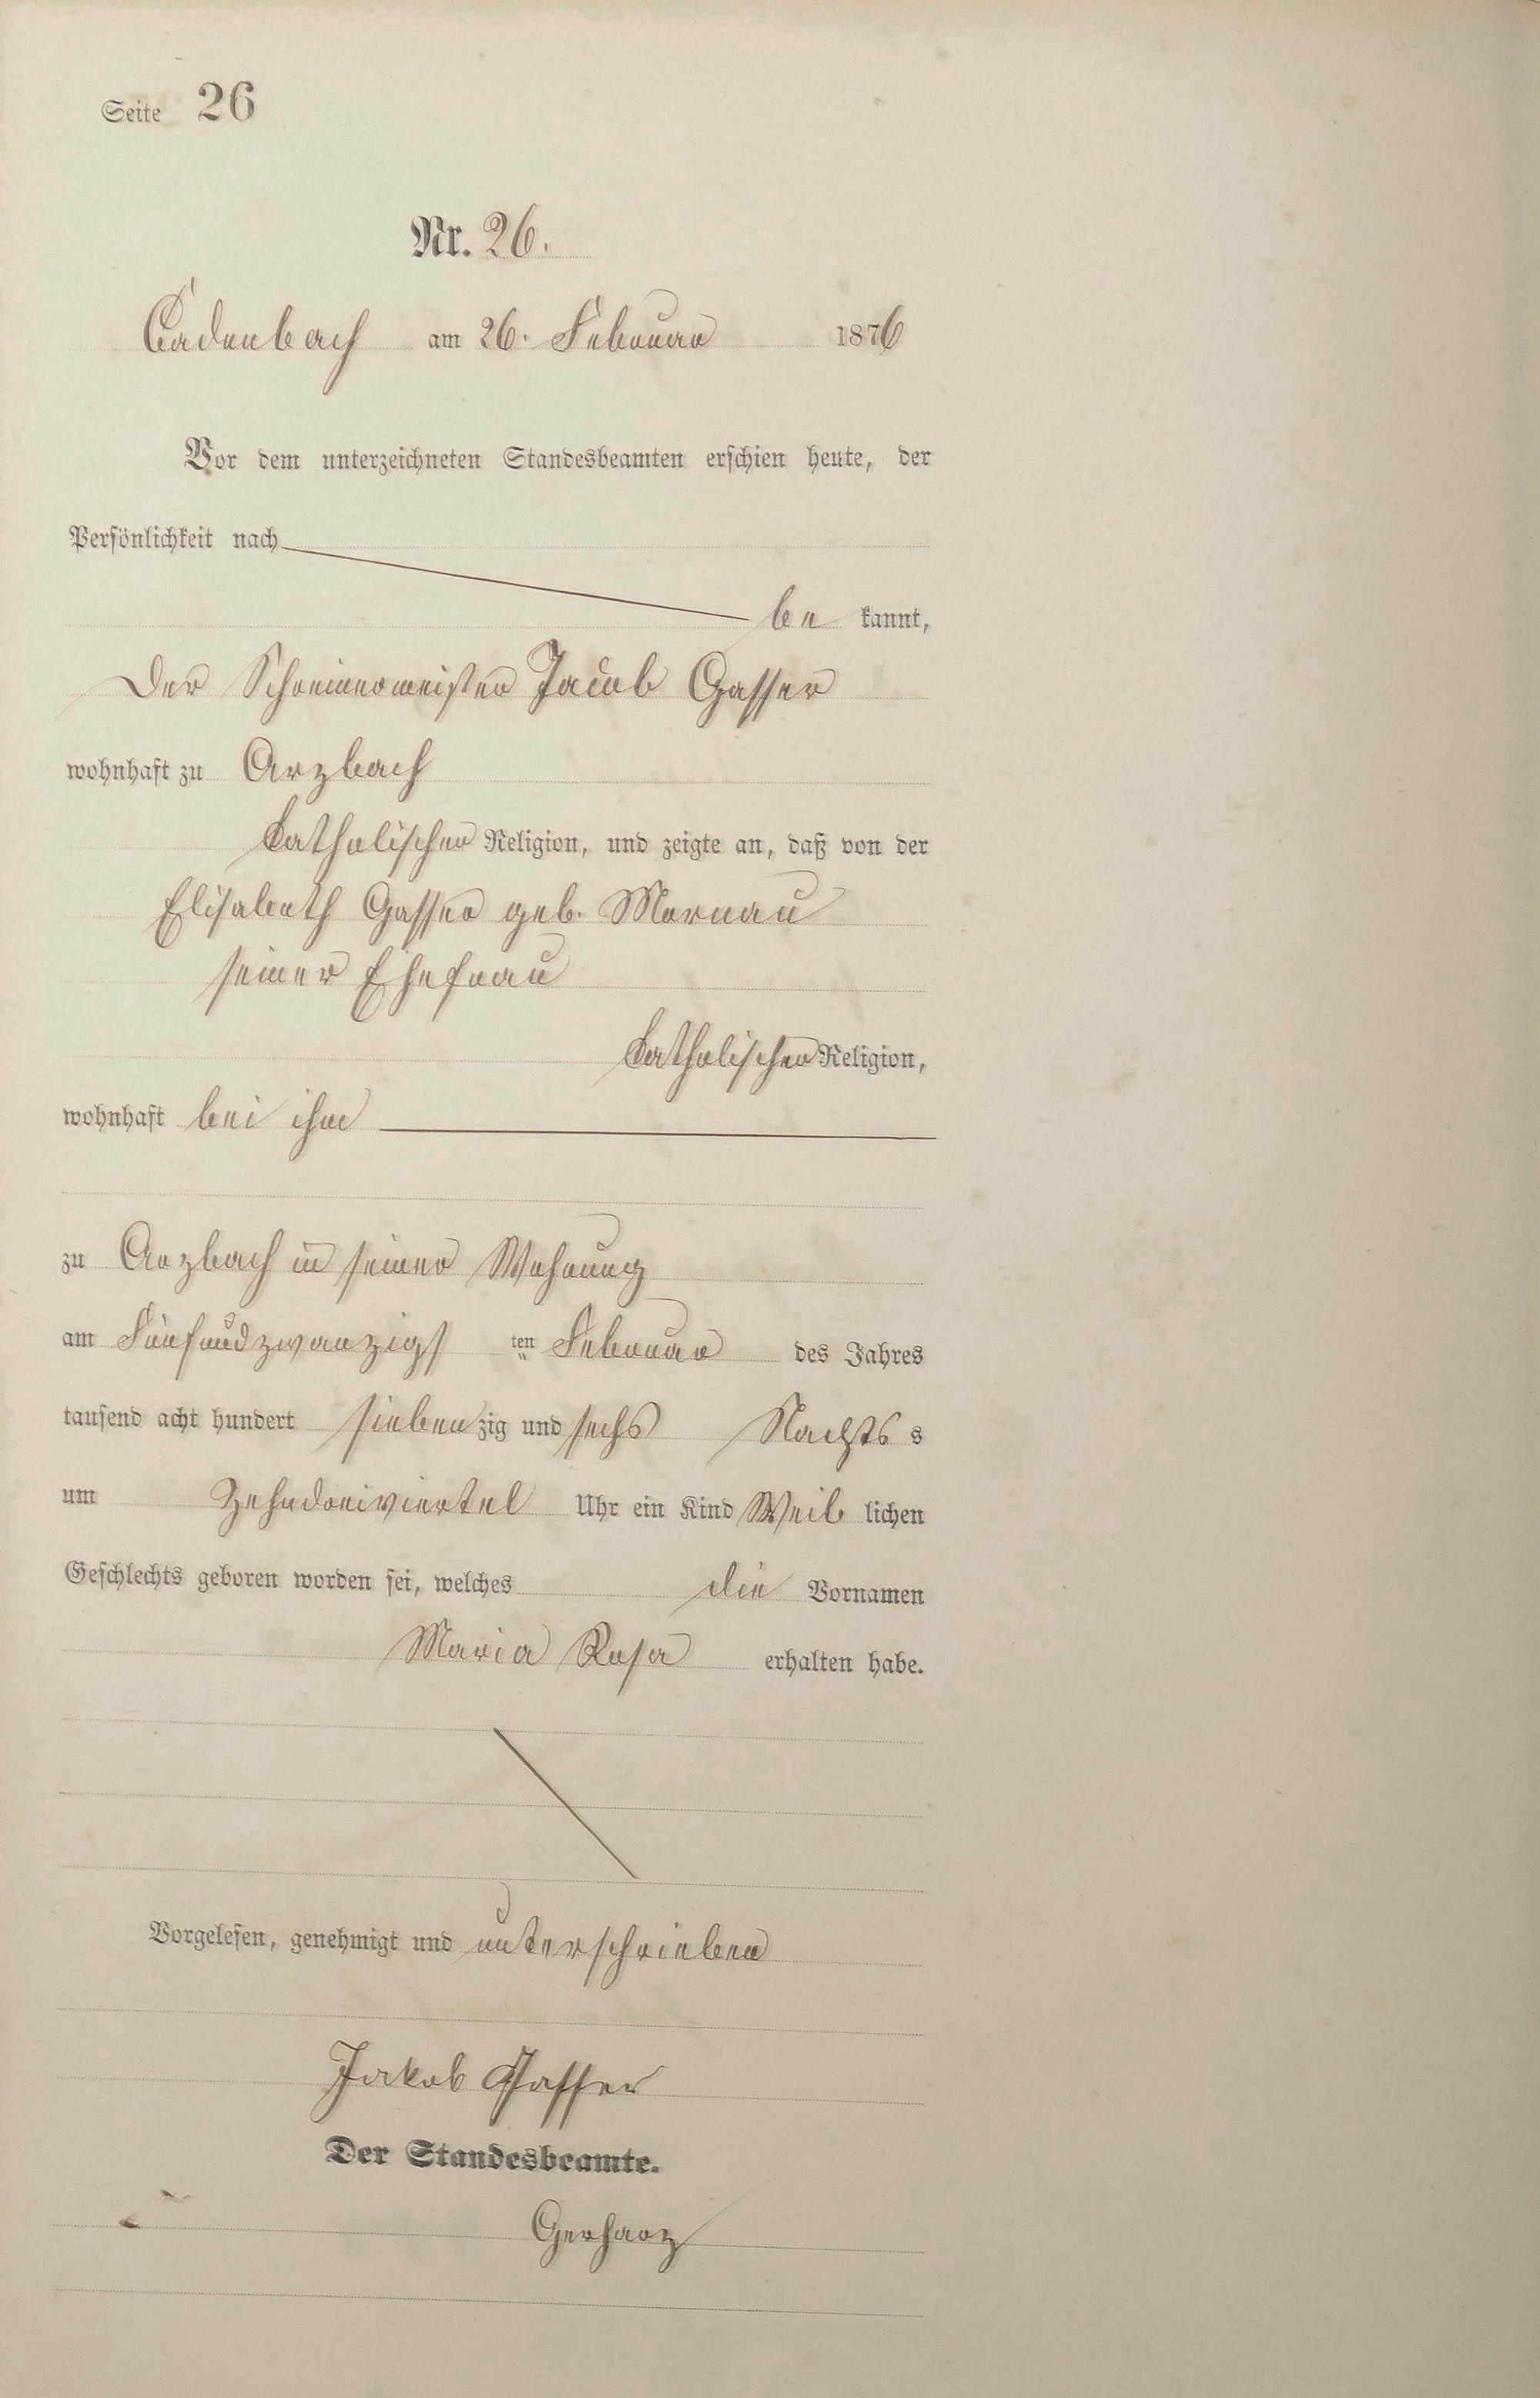 Seite 26
Nr. 26.
Cadenbach am 26. Februar 1876
Vor dem unterzeichneten Standesbeamten erschien heute, der
Persönlichkeit nach
be kannt,
Der Schreinermeister Jacob Gasser
wohnhaft zu Arzbach
katholischer Religion, und zeigte an, daß von der
Elisabeth Gasser geb. Mornau
seiner Ehefrau
katholischer Religion,
wohnhaft bei ihm
zu Arzbach in seiner Wohnung
am Fünfundzwanzigs ten Februar des Jahres
tausend acht hundert siebenzig und sechs Nachts s
um Zehndreiviertel Uhr ein Kind Weib lichen
Geschlechts geboren worden sei, welches die Vornamen
Maria Rosa erhalten habe.
Vorgelesen, genehmigt und unterschrieben
Jakob Gasser
Der Standesbeamte.
Gerharz